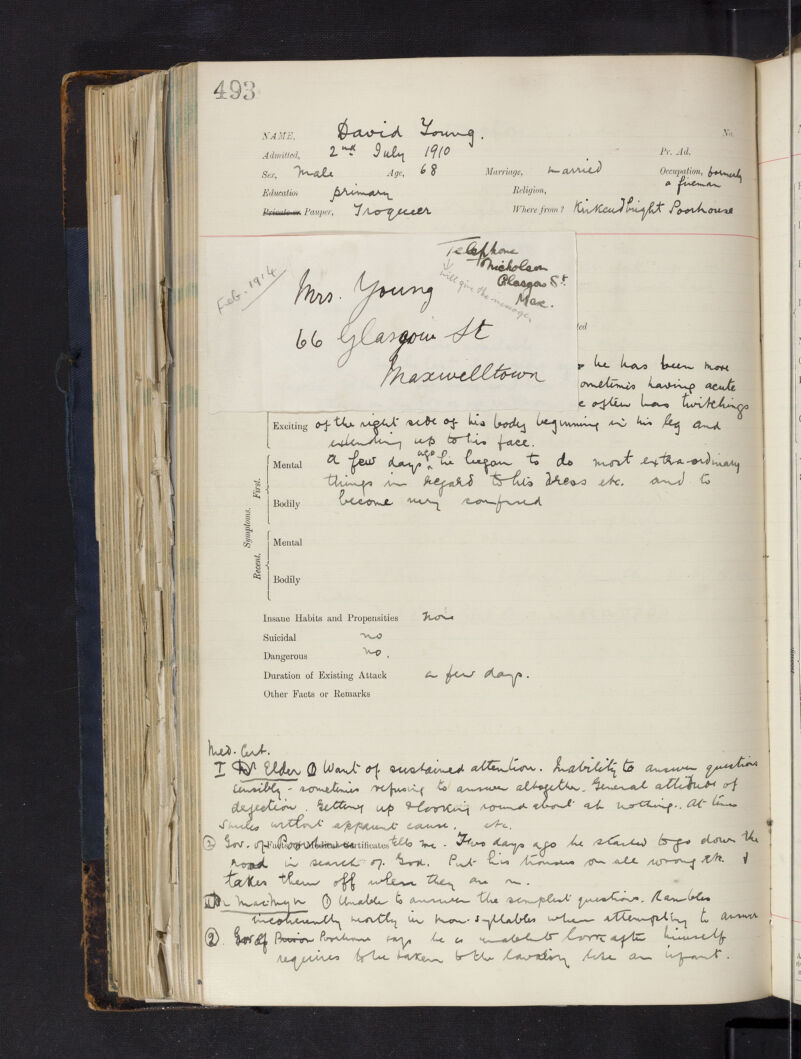 493
NAME, David Young. No.
Admitted, 2nd July 1910 Pr. Ad.
Sex, Male Age, 68 Marriage, married Occupation, formerly
a fireman
Education primary Religion,
Private or Pauper, Troqueer Where from? Kirkcudbright Poorhouse
Feb. 1914
Telephone
Nicholson
Glasgow St.
Max.
will give the message.
Mrs. Young
66 Glasgow St
Maxwelltown
ted
he has been more
ometimes having acute
e often has twitchings
Exciting of the right side of his body beginning in his leg and
extending up to his face.
Symptoms.
First.
Mental a few days ago he began to do most extra-ordinary
things in regard to his dress etc. and to
Bodily become very confused
Recent.
Mental
Bodily
Insane Habits and Propensities none
Suicidal no
Dangerous no.
Duration of Existing Attack a few days.
Other Facts or Remarks
Med. Cert.
I Dr Elder ① Want of sustained attention. Inability to answer questions
sensibly - sometimes refusing to answer altogether. General attitude of
dejection. Getting up & looking round about at nothing. At times
smiles without apparent cause. etc.
② Gov. of Poorhouse tells me. Two days ago he started to go down the
Facts in Medical Certificates
road in search of God. Put his trousers on all wrong etc. &
takes them off when they are on.
II Dr ① Unable to answer the simplest questions. Rambles
incoherently mostly in mono-syllables when attempting to answer
② Gov of Prison Poorhouse says he is unable to look after himself
requires to be taken to the lavatory like an infant.